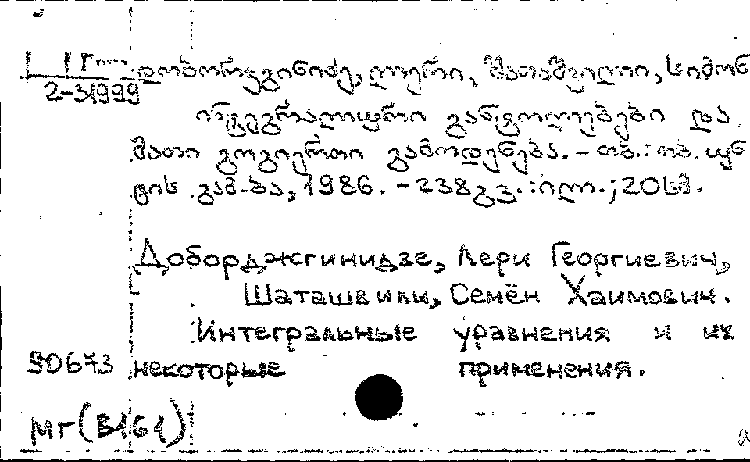 დობორჯგინიძე, ლერი, შათაშვილი, სიმონ
2-31999
ინტეგრალური განტოლებები და
მათი ზოგიერთი გამოყენება. – თბ.: თბ. უნ
ტის გამ-ბა, 1986. – 238გვ.: ილ.; 20სმ.
Доборджгинидзе, Лери Георгиевич,
Шаташвили, Семён Хаимович.
Интегральные уравнения и их
90673 некоторые применения.
МГ(В161)